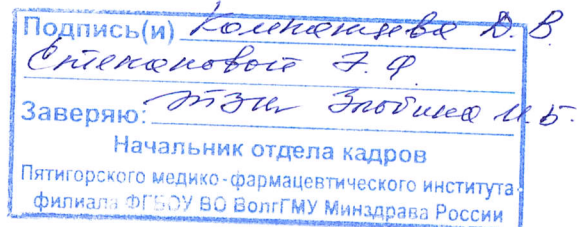 Подпись(и) Компанцева Д. В.
Степановой Э. Ф.
Заверяю: Злобина И. Б.
Начальник отдела кадров
Пятигорского медико-фармацевтического института-
филиала ФГБОУ ВО ВолгГМУ Минздрава России